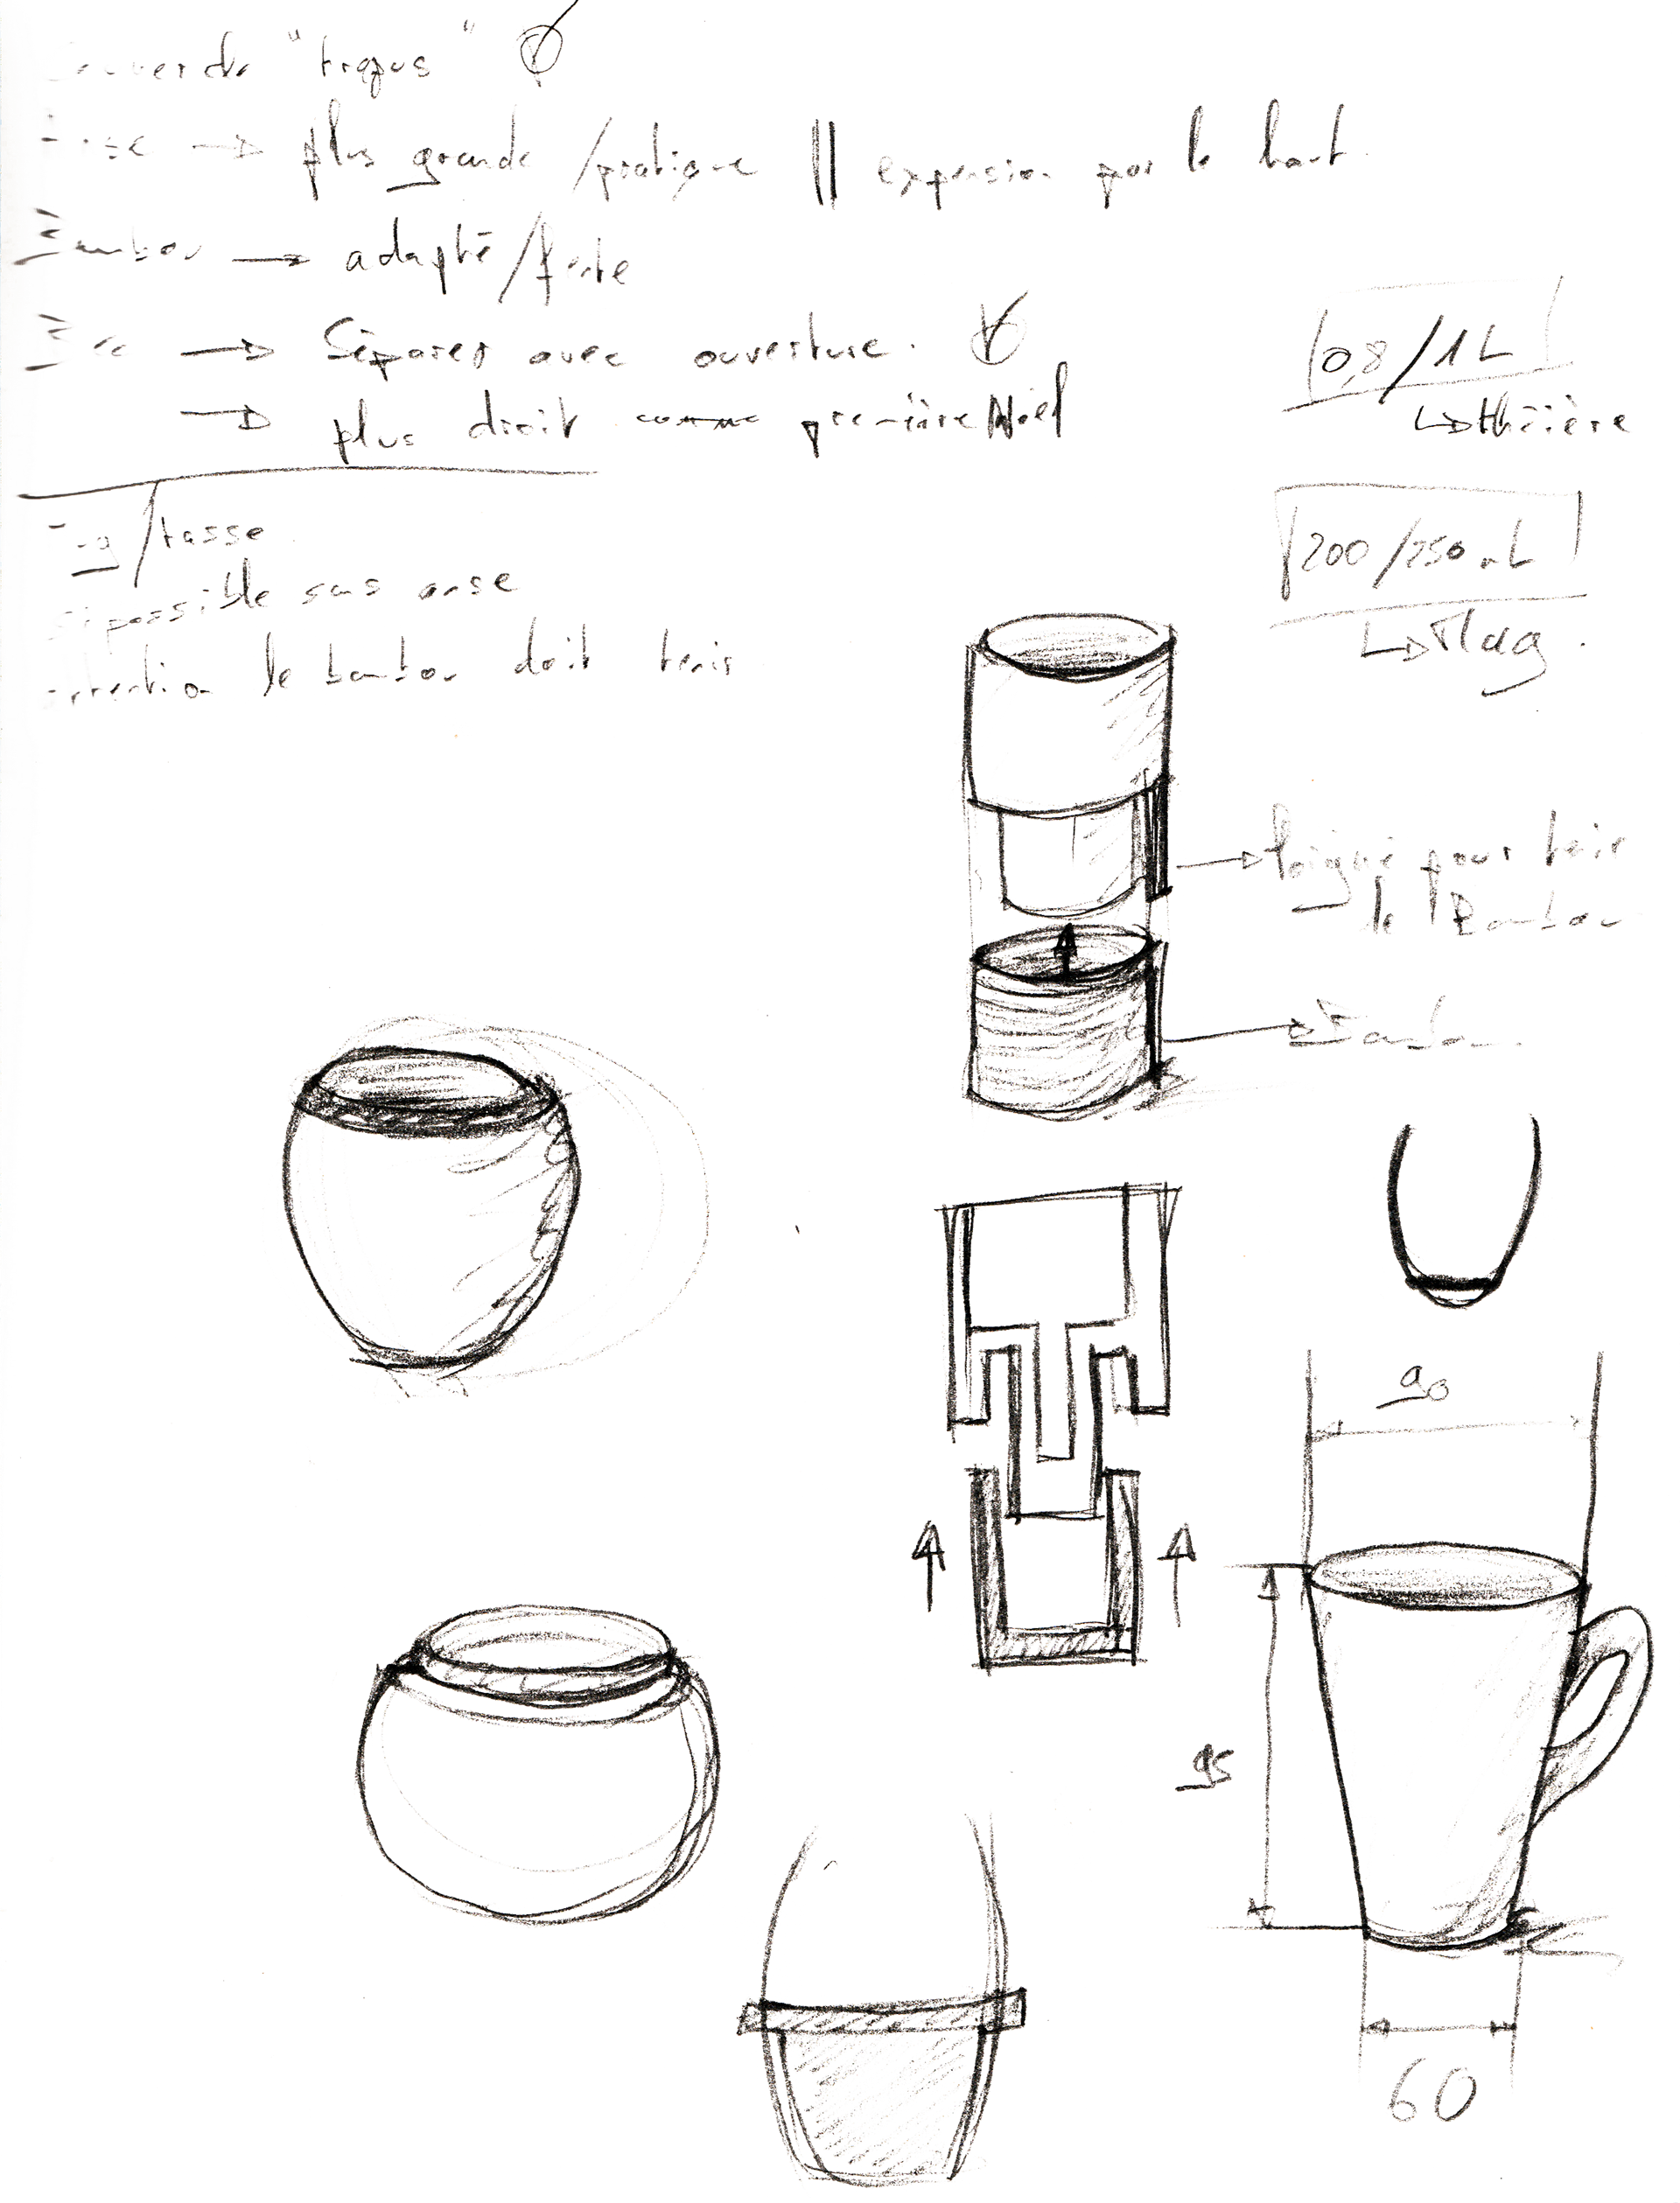 "trapus"
→ plus grande /pratique || expension par le haut.
Bambou → adapté/
Bec → Séparer avec ouverture.
→ plus droit comme première Noël
/tasse
si possible sans anse
attention le bambou doit tenir
0,8/1L
↳ théière
200/250 mL
↳ Mug.
→ Poigné pour tenir
le Bambou
→ Bambou.
90
95
60